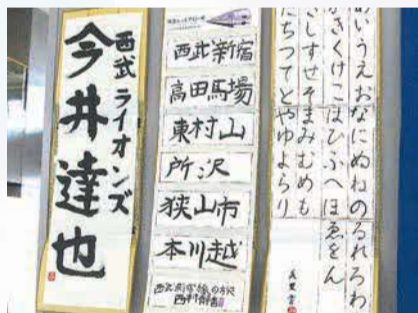 西武 ライオンズ
今井達也
西武新宿
高田馬場
東村山
所沢
狭山市
本川越
あいうえおなにぬねのるれろわ
かきくけこはひふへほゑをん
さしすせそまみむめも
たちつてとやゆよらり